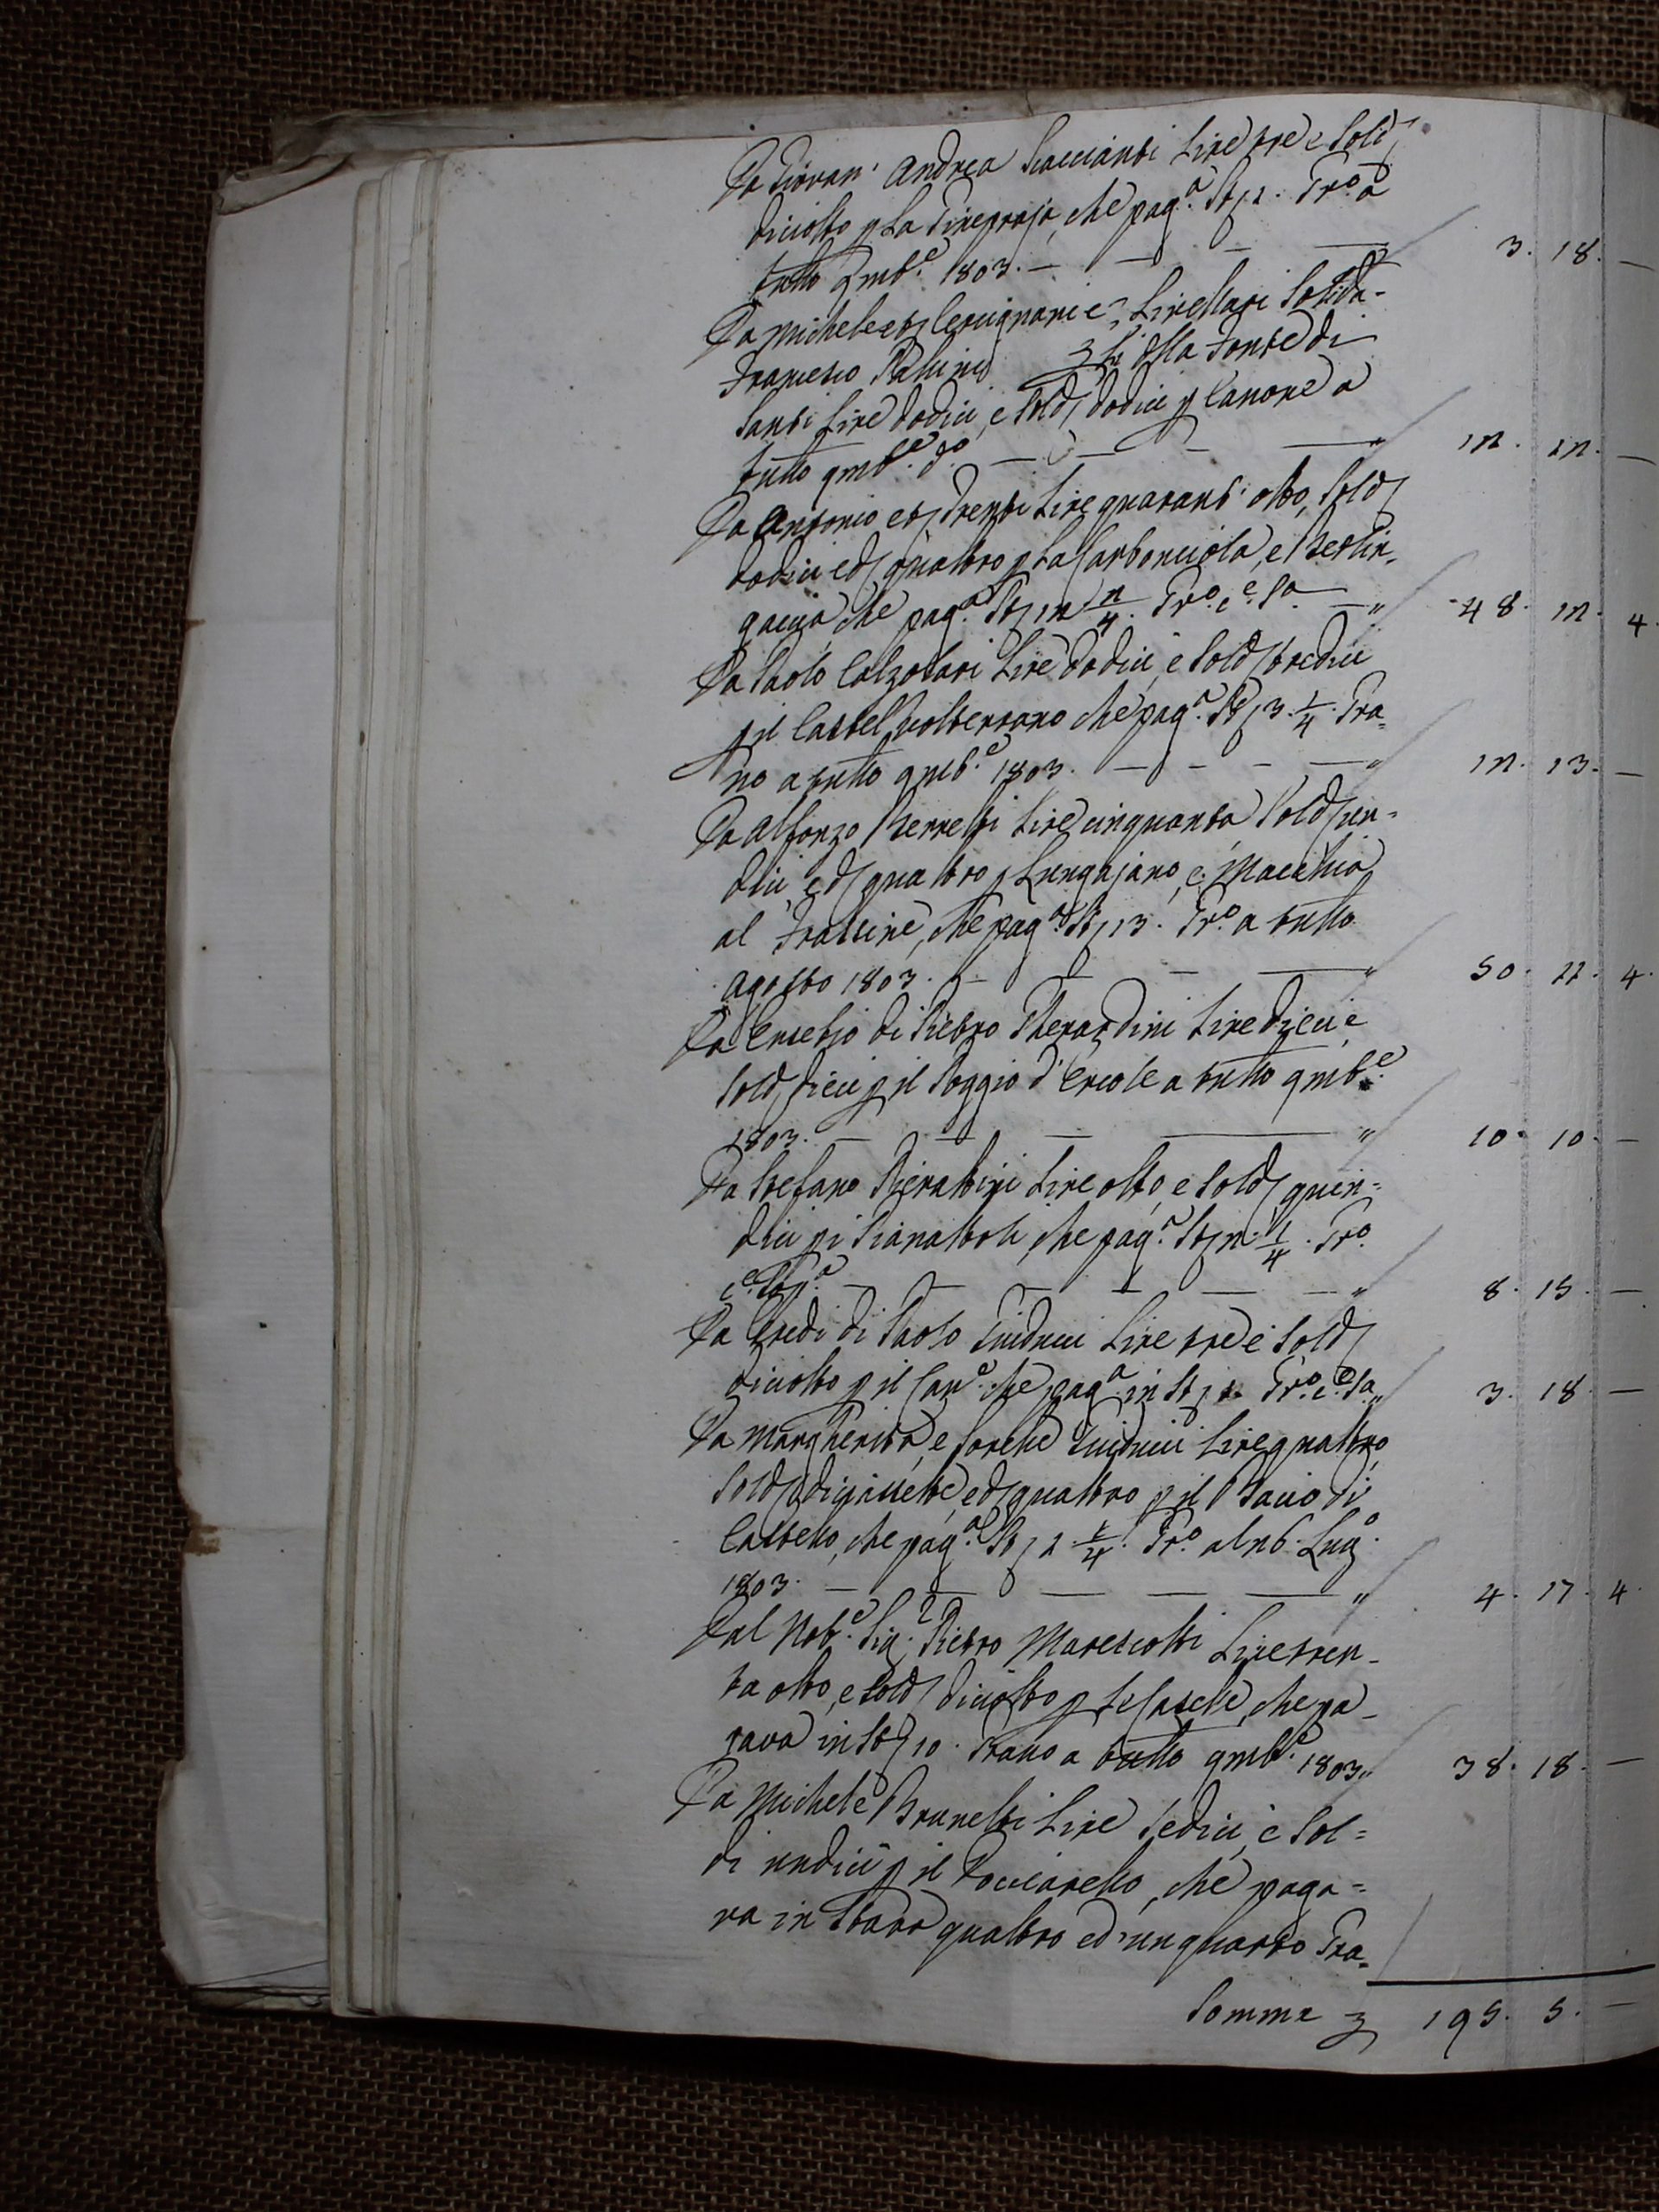 Da Giovan' Andrea Scaccianti Lire tre e Sold
diciotto p La Pireppaja, che pag.ᵃ St 1. Gr.º a
tutto 9mb.ᵉ 1803. — — — — 3. 18. —
Da Michele et Cercignani e Livellari Solida-
Francesco Pallini della Fonte di
Santi Lire dodici, e Sold dodici p Canone a
tutto 9mb.ᵉ d.º — — — — " 12. 12. —
Da Antonio et Drenti Lire quarant' otto, Sold
dodici ed quattro p La Carbonciola, e Berlin-
gaccia che pag.ᵃ St 12 2/4. Gr.º e.ᵉ S.ᵃ — " 48. 12. 4.
Da Paolo Calzolari Lire dodici, e Sold tredici
p il Castel Volterrano che pag.ᵃ St 3. 1/4. Gra=
no a tutto 9mb.ᵉ 1803. — — — — " 12. 13. —
Da Alfonzo Berretti Lire cinquanta Sold un=
dici, ed quattro p Lungajano, e Macchia
al Frassine, che pag.ᵃ St 13. Gr.º a tutto
Agosto 1803. — — — — " 50. 11. 4.
Da Eusebio di Pietro Gherardini Lire dieci, e
Sold dieci p il Poggio d' Ercole a tutto 9mb.ᵉ
1803. — — — — " 10. 10. —
Da Stefano Pierattini Lire otto, e Sold quin=
dici p i Pianattoli, che pag.ᵃ St 2. 1/4. Gr.º
— — — — — " 8. 15. —
Da Eredi di Paolo Guiducci Lire tre e Sold
diciotto p il Can.ᵉ che pag.ᵃ in St 1. Gr.º e.ᵉ S.ᵃ " 3. 18. —
Da Margherita, e Sorelle Guiducci Lire quattro,
Sold diciassette, ed quattro p il Bacio di
Castello, che pag.ᵃ St 1 1/4. Gr.º al 26. Lug.º
1803. — — — — — " 4. 17. 4.
Dal Nob.ᵉ Sig.ʳ Pietro Marescotti Lire tren-
ta otto, e Sold diciotto p Le Caselle, che pa-
gava in St 10. Grano a tutto 9mb.ᵉ 1803 " 38. 18. —
Da Michele Brunetti Lire Sedici, e Sol=
di undici p il Docciarello, che paga=
va in Stara quattro ed un quarto Gra=
Somma 195. 5. —